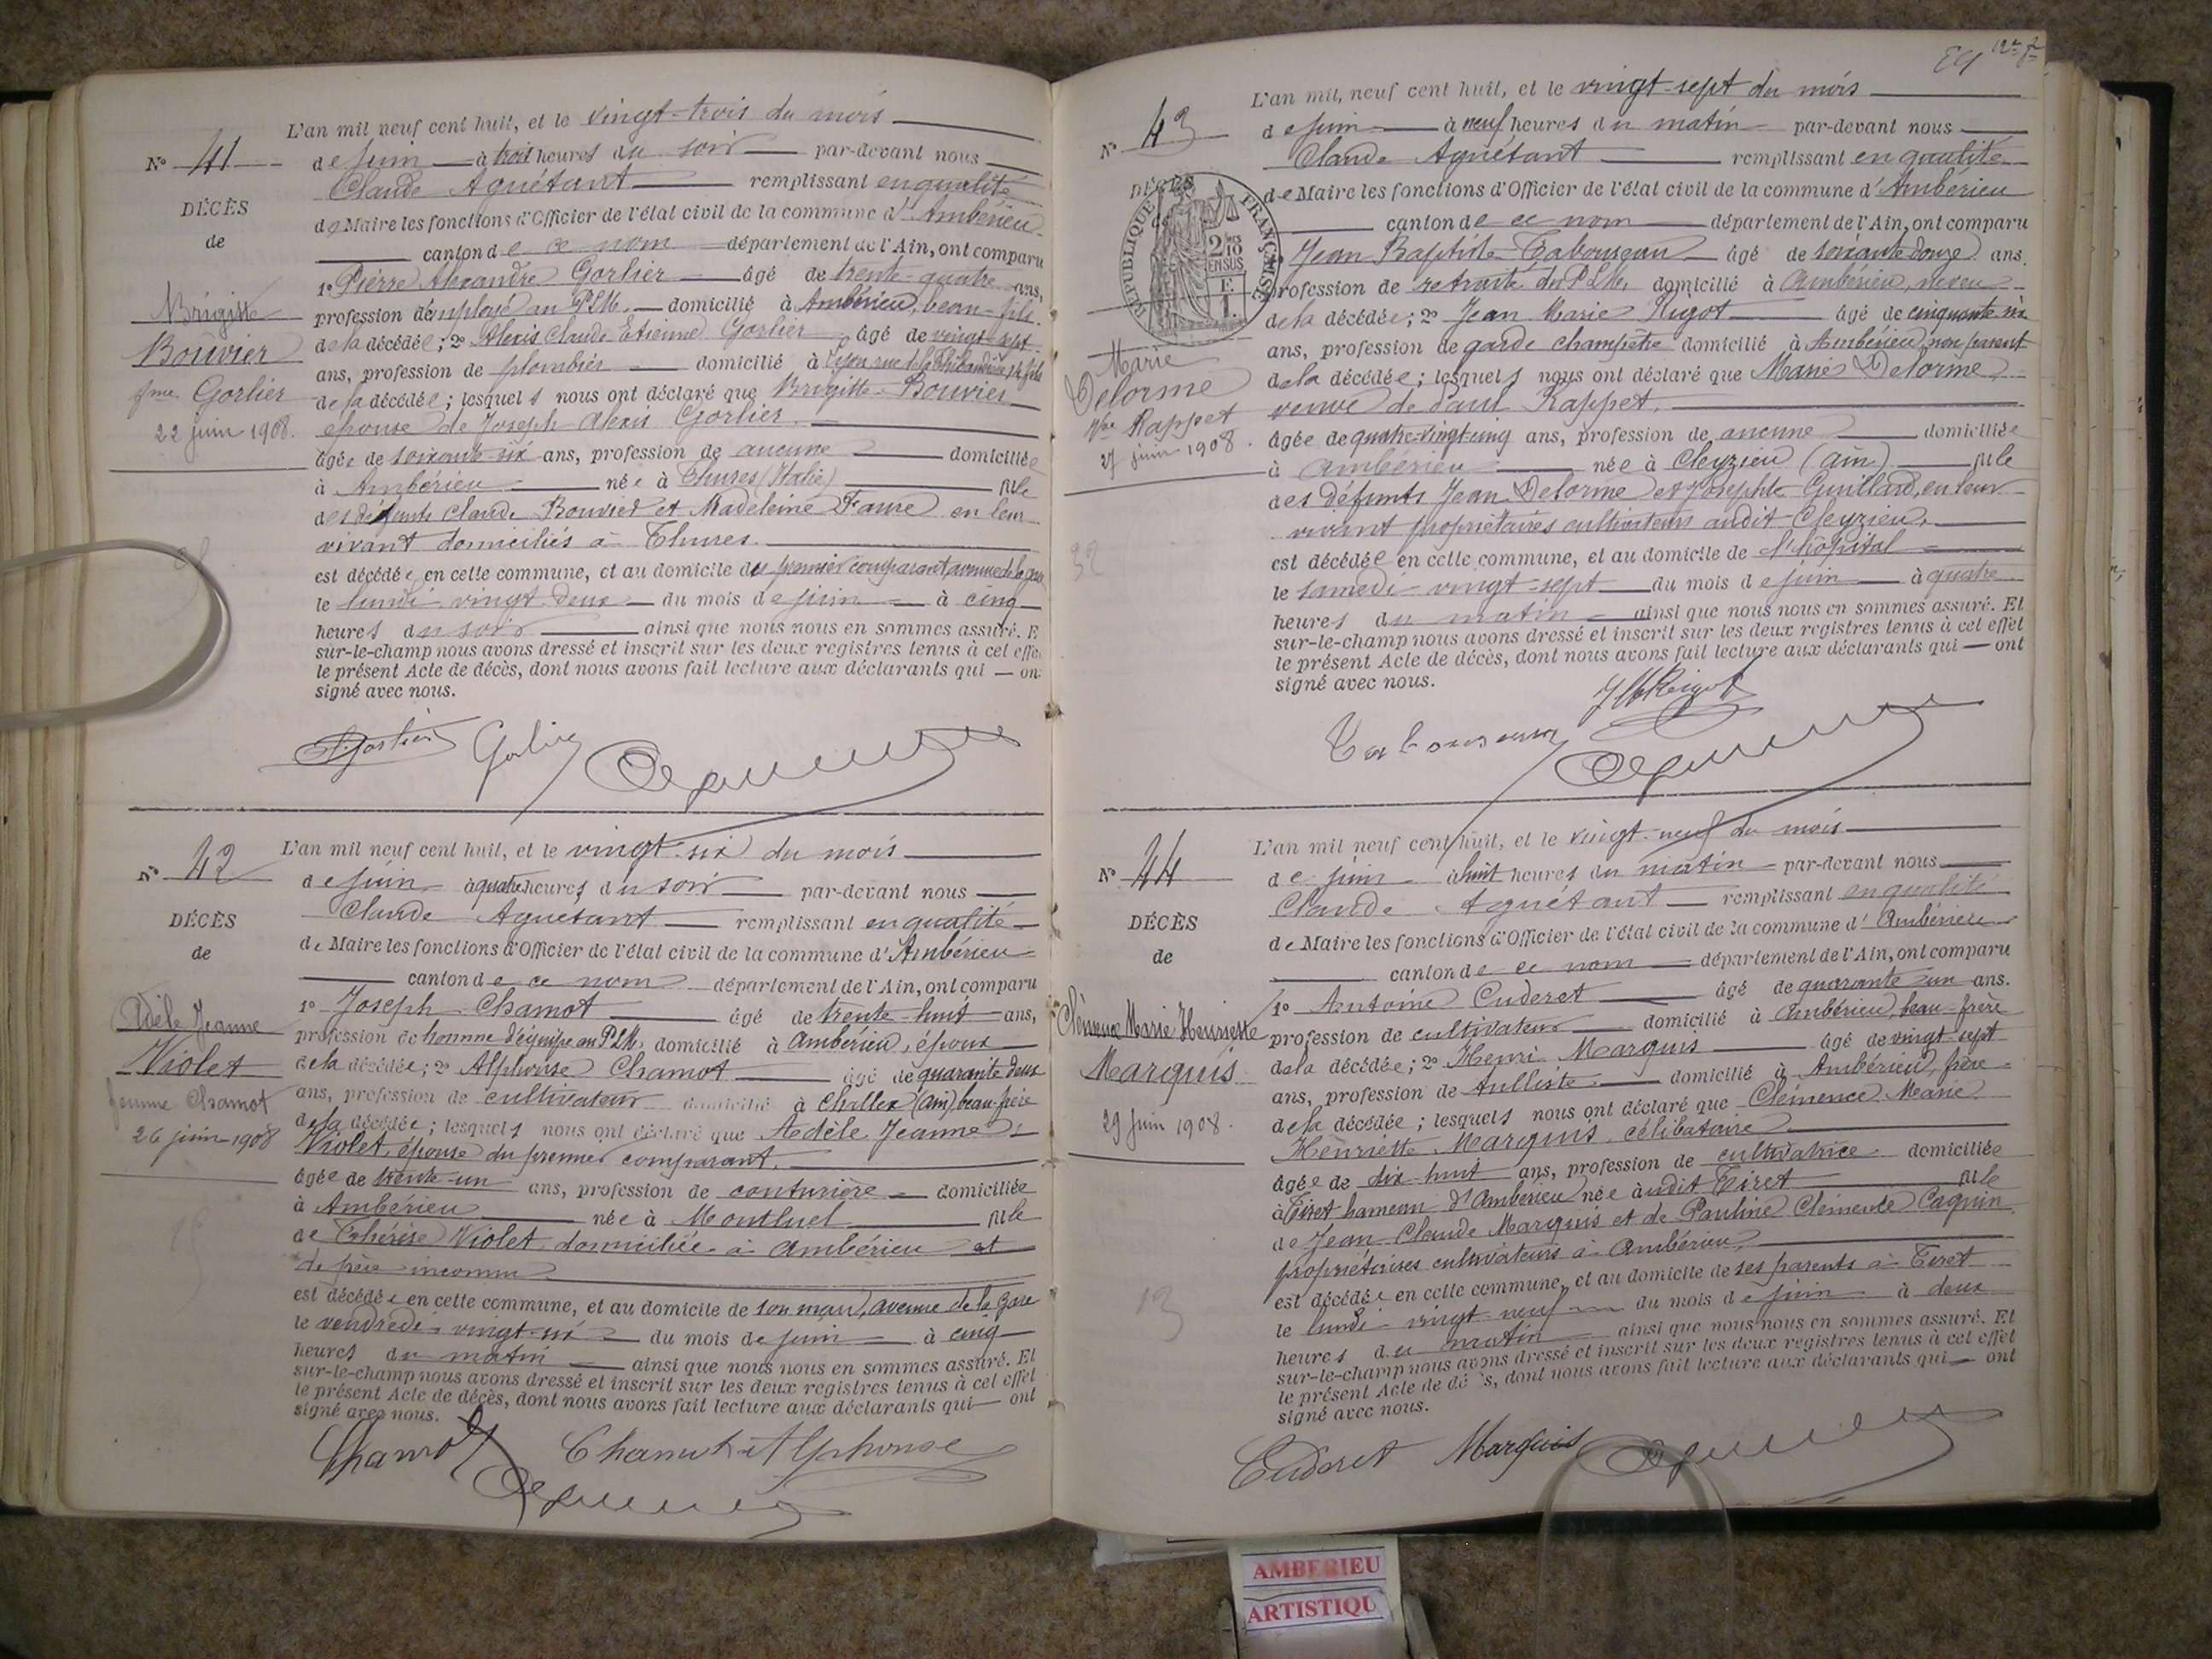 L'an mil neuf cent huit, et le vingt-trois du mois
N° 41
de juin à trois heures du soir par-devant nous
Claude Aguétant remplissant en qualité
DÉCÈS
de Maire les fonctions d'Officier de l'état civil de la commune d'Ambérieu
de
canton de ce nom département de l'Ain, ont comparu
1° Pierre Alexandre Gorlier âgé de trente-quatre ans,
profession d'employé au PLM. domicilié à Ambérieu, beau-fils
Brigitte
de la décédée; 2° Alexis Claude Etienne Gorlier âgé de vingt-sept
Bouvier
ans, profession de plombier domicilié à Lyon rue de la
fme Gorlier
de la décédée; lesquels nous ont déclaré que Brigitte Bouvier
22 juin 1908.
épouse de Joseph Alexis Gorlier.
âgée de soixante-six ans, profession de aucune domiciliée
à Ambérieu née à Thures (Italie) fille
des défunts Claude Bouvier et Madeleine Faure en leur
vivant domiciliés à Thures.
est décédée en cette commune, et au domicile du premier comparant, avenue de la gare
le lundi vingt-deux du mois de juin à cinq
heures du soir ainsi que nous nous en sommes assuré. E
sur-le-champ nous avons dressé et inscrit sur les deux registres tenus à cet effe
le présent Acte de décès, dont nous avons fait lecture aux déclarants qui ont
signé avec nous.
Gorlier Gorlier
L'an mil neuf cent huit, et le vingt-six du mois
N° 42
de juin à quatre heures du soir par-devant nous
Claude Aguétant remplissant en qualité
DÉCÈS
de Maire les fonctions d'Officier de l'état civil de la commune d'Ambérieu
de
canton de ce nom département de l'Ain, ont comparu
1° Joseph Chamot âgé de trente-huit ans,
Adèle Jeanne
profession de homme d'équipe au PLM, domicilié à Ambérieu, époux
Violet
de la décédée; 2° Alphonse Chamot âgé de quarante deux
femme Chamot
ans, profession de cultivateur domicilié à Challex (Ain) beau-frère
26 juin 1908
de la décédée; lesquels nous ont déclaré que Adèle Jeanne
Violet, épouse du premier comparant.
âgée de trente-un ans, profession de couturière domiciliée
à Ambérieu née à Montluel fille
de Thérèse Violet domiciliée à Ambérieu et
de père inconnu
est décédée en cette commune, et au domicile de son mari, avenue de la Gare
le vendredi vingt-six du mois de juin à cinq
heures du matin ainsi que nous nous en sommes assuré. Et
sur-le-champ nous avons dressé et inscrit sur les deux registres tenus à cet effet
le présent Acte de décès, dont nous avons fait lecture aux déclarants qui ont
signé avec nous.
Chamot Chamot Alphonse
L'an mil, neuf cent huit, et le vingt-sept du mois
N° 43
de juin à neuf heures du matin par-devant nous
Claude Aguétant remplissant en qualité
DÉCÈS
de Maire les fonctions d'Officier de l'état civil de la commune d'Ambérieu
RÉPUBLIQUE FRANÇAISE
2/10 EN SUS
canton de ce nom département de l'Ain, ont comparu
Jean Baptiste Tabouseau âgé de soixante douze ans.
profession de retraité du PLM, domicilié à Ambérieu, neveu
de la décédée; 2° Jean Marie Rigot âgé de cinquante six
Marie
ans, profession de garde champêtre domicilié à Ambérieu, non parent
Delorme
de la décédée; lesquels nous ont déclaré que Marie Delorme,
Vve Rappet
veuve de Paul Rappet.
27 juin 1908.
âgée de quatre-vingt-cinq ans, profession de aucune domiciliée
à Ambérieu née à Cleyzieu (Ain) fille
des défunts Jean Delorme et Josephte Guillard, en leur
vivant propriétaires cultivateurs audit Cleyzieu,
32
est décédée en cette commune, et au domicile de l'hôpital
le samedi vingt-sept du mois de juin à quatre
heures du matin ainsi que nous nous en sommes assuré. Et
sur-le-champ nous avons dressé et inscrit sur les deux registres tenus à cet effet
le présent Acte de décès, dont nous avons fait lecture aux déclarants qui ont
signé avec nous.
L'an mil neuf cent huit, et le vingt-neuf du mois
N° 44
de juin à huit heures du matin par-devant nous
Claude Aguétant remplissant en qualité
DÉCÈS
de Maire les fonctions d'Officier de l'état civil de la commune d'Ambérieu
de
canton de ce nom département de l'Ain, ont comparu
1° Antoine Cuderet âgé de quarante un ans.
Clémence Marie Henriette
profession de cultivateur domicilié à Ambérieu, beau-frère
Marquis
de la décédée; 2° Henri Marquis âgé de vingt-sept
ans, profession de tulliste domicilié à Ambérieu, frère
29 juin 1908.
de la décédée; lesquels nous ont déclaré que Clémence Marie
Henriette Marquis, célibataire
âgée de dix-huit ans, profession de cultivatrice domiciliée
à Tiret hameau d'Ambérieu née audit Tiret fille
de Jean Claude Marquis et de Pauline Clémence Cagnin
propriétaires cultivateurs à Ambérieu,
est décédée en cette commune, et au domicile de ses parents à Tiret
13
le lundi vingt-neuf du mois de juin à deux
heures du matin ainsi que nous nous en sommes assuré. Et
sur-le-champ nous avons dressé et inscrit sur les deux registres tenus à cet effet
le présent Acte de dé s, dont nous avons fait lecture aux déclarants qui ont
signé avec nous.
Cuderet Marquis
AMBERIEU
ARTISTIQU